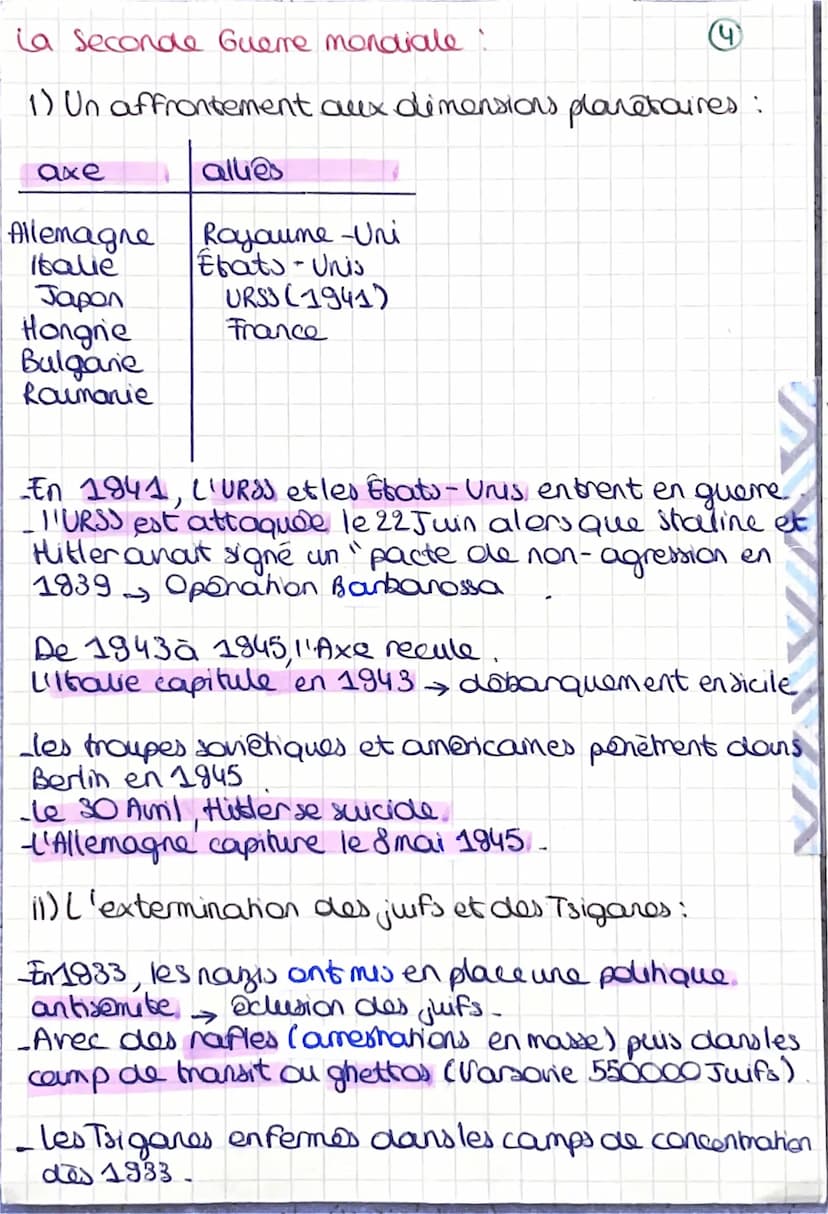 La Seconde Guerre mondiale :
4
1) Un affrontement aux dimensions planétaires :
axe alliés
Allemagne Royaume-Uni
Italie États-Unis
Japon URSS (1941)
Hongrie France
Bulgarie
Roumanie
-En 1941, L'URSS et les États-Unis entrent en guerre.
- l'URSS est attaquée le 22 Juin alors que Staline et
Hitler avait signé un "pacte de non-agression en
1939 → Opération Barbarossa
De 1943 à 1945, l'Axe recule.
L'Italie capitule en 1943 → débarquement en Sicile
-les troupes soviétiques et américaines pénètrent dans
Berlin en 1945
-Le 30 Avril, Hitler se suicide.
-L'Allemagne capiture le 8 mai 1945.
II) L'extermination des juifs et des Tsiganes :
-En 1933, les nazis ont mis en place une politique
antisémite. → éclusion des juifs.
-Avec des rafles (arrestations en masse) puis dans les
camp de transit ou ghettos (Varsovie 550000 Juifs).
- les Tsiganes enfermés dans les camps de concentration
dès 1933.